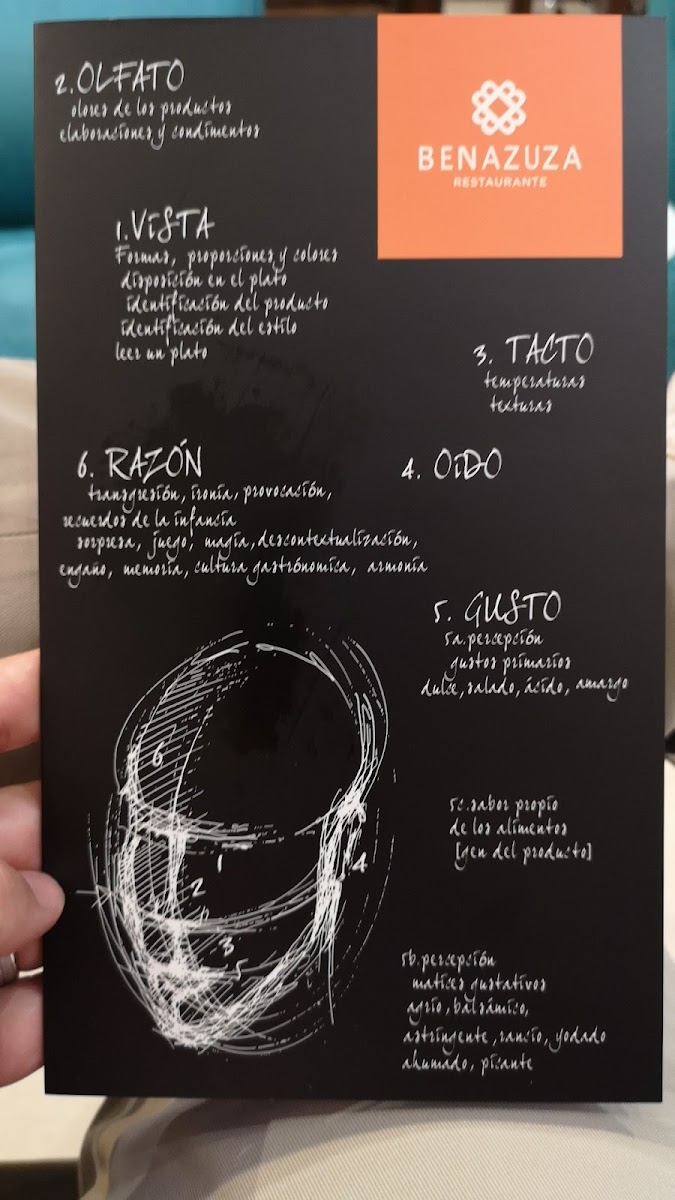 2. OLFATO
olores de los productos
elaboraciones y condimentos
BENAZUZA
RESTAURANTE
1. ViSTA
Formas, proporciones y colores
disposición en el plato
identificación del producto
identificación del estilo
leer un plato
3. TACTO
temperaturas
texturas
6. RAZÓN
transgresión, ironía, provocación,
recuerdos de la infancia
sorpresa, juego, magia, descontextualización,
engaño, memoria, cultura gastrónomica, armonía
4. OiDO
5. GUSTO
5a. percepción
gustos primarios
dulce, salado, ácido, amargo
5c. sabor propio
de los alimentos
[gen del producto]
5b. percepción
matices gustativos
agrio, balsámico,
astringente, rancio, yodado
ahumado, picante
6
1
2
4
3
5